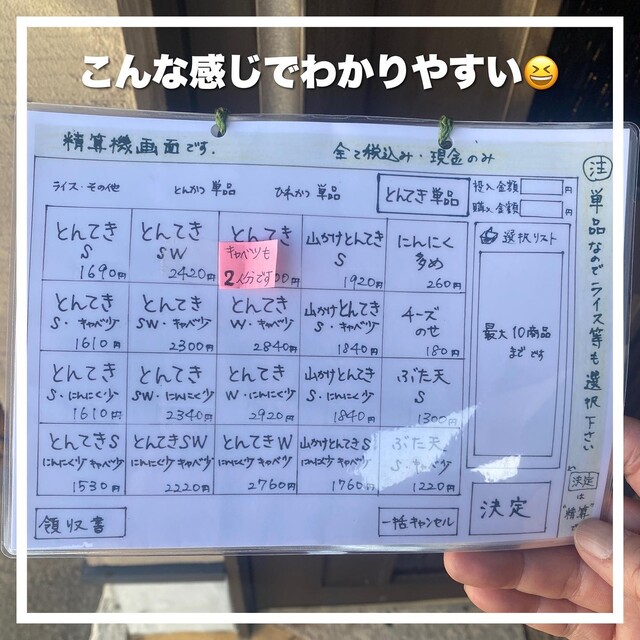 こんな感じでわかりやすい😆
精算機画面です. 全て税込み・現金のみ
ライス・その他 とんかつ 単品 ひれかつ 単品 とんてき 単品
投入金額 円
購入金額 円
とんてき S 1690円
とんてき SW 2420円
とんてき 00円
キャベツも 2人分です
山かけとんてき S 1920円
にんにく 多め 260円
とんてき S・キャベツ少 1610円
とんてき SW・キャベツ少 2300円
とんてき W・キャベツ少 2840円
山かけとんてき S・キャベツ少 1840円
チーズ のせ 180円
とんてき S・にんにく少 1610円
とんてき SW・にんにく少 2340円
とんてき W・にんにく少 2920円
山かけとんてき S・にんにく少 1840円
ぶた天 S 1300円
とんてきS にんにく少 キャベツ少 1530円
とんてきSW にんにく少 キャベツ少 2220円
とんてきW にんにく少 キャベツ少 2760円
山かけとんてきS にんにく少 キャベツ少 1760円
ぶた天 S・キャベツ少 1220円
選択リスト
最大10商品
までです
領収書 一括キャンセル 決定
注 単品なのでライス等も選択下さい
決定は"精算"で